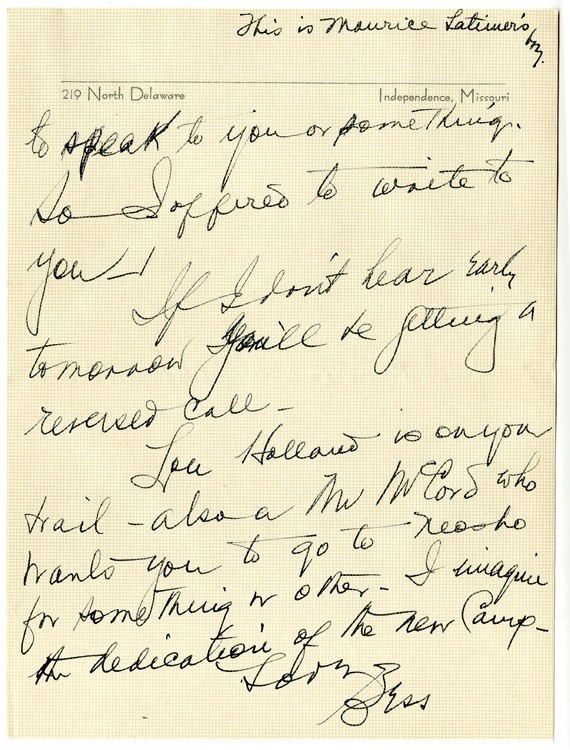 This is Maurice Latimer's
boy.
219 North Delaware Independence, Missouri
to speak to you or something.
So I offered to write to
you—!
If I don't hear early
tomorrow you'll be getting a
reversed call—
Lou Holland is on your
trail – also a Mr McCord who
wants you to go to Neosho
for something or other – I imagine
the dedication of the new Camp—
Love
Bess